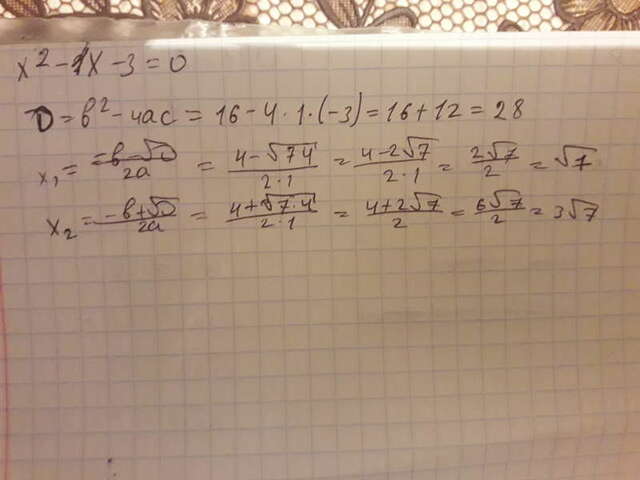 x² - 4x - 3 = 0
D = b² - 4ac = 16 - 4·1·(-3) = 16 + 12 = 28
x₁ = (-b - √D)/2a = (4 - √7·4)/(2·1) = (4 - 2√7)/(2·1) = 2√7/2 = √7
x₂ = (-b + √D)/2a = (4 + √7·4)/(2·1) = (4 + 2√7)/2 = 6√7/2 = 3√7